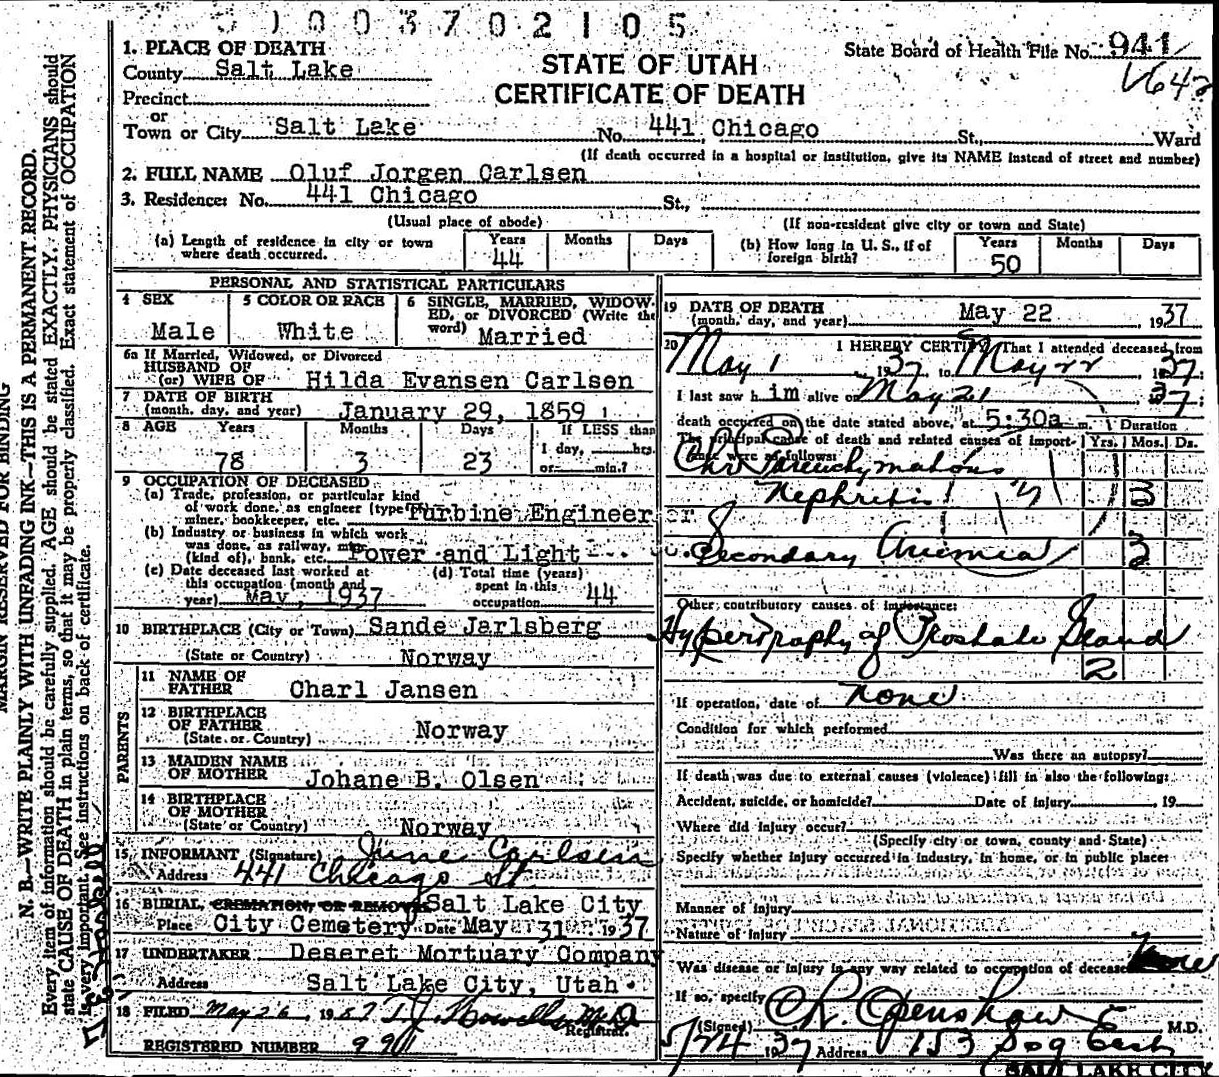 0 0 3 7 0 2 1 0 5
1. PLACE OF DEATH
County Salt Lake
Precinct
or
Town or City Salt Lake No. 441 Chicago St., Ward
STATE OF UTAH
CERTIFICATE OF DEATH
State Board of Health File No. 941
(If death occurred in a hospital or institution, give its NAME instead of street and number)
2. FULL NAME Oluf Jorgen Carlsen
3. Residence: No. 441 Chicago St.,
(Usual place of abode) (If non-resident give city or town and State)
(a) Length of residence in city or town where death occurred. Years 44 Months Days
(b) How long in U. S., if of foreign birth? Years 50 Months Days
PERSONAL AND STATISTICAL PARTICULARS
4 SEX
Male
5 COLOR OR RACE
White
6 SINGLE, MARRIED, WIDOW-
ED, or DIVORCED (Write the
word) Married
6a If Married, Widowed, or Divorced
HUSBAND OF
(or) WIFE OF Hilda Evansen Carlsen
7 DATE OF BIRTH
(month, day, and year) January 29, 1859
8 AGE Years Months Days If LESS than
78 3 23 1 day, hrs.
or min.?
9 OCCUPATION OF DECEASED
(a) Trade, profession, or particular kind
of work done, as engineer (type
miner, bookkeeper, etc. Turbine Engineer
(b) Industry or business in which work
was done, as railway,
(kind of), bank, etc. Power and Light
(c) Date deceased last worked at
this occupation (month and
year) May, 1937
(d) Total time (years)
spent in this
occupation 44
10 BIRTHPLACE (City or Town) Sande Jarlsberg
(State or Country) Norway
PARENTS
11 NAME OF
FATHER Charl Jansen
12 BIRTHPLACE
OF FATHER
(State or Country) Norway
13 MAIDEN NAME
OF MOTHER Johane B. Olsen
14 BIRTHPLACE
OF MOTHER
(State or Country) Norway
15 INFORMANT (Signature) June Carlsen
Address 441 Chicago St
16 BURIAL, CREMATION, OR REMOVAL Salt Lake City
Place City Cemetery Date May 31 1937
17 UNDERTAKER Deseret Mortuary Company
Address Salt Lake City, Utah.
18 FILED May 26, 1937 T.J. Howells M.D.
Registrar.
REGISTERED NUMBER 991
19 DATE OF DEATH
(month, day, and year) May 22, 1937
20 I HEREBY CERTIFY, That I attended deceased from
May 1, 1937, to May 22 1937.
I last saw him alive on May 21 37;
death occurred on the date stated above, at 5:30a m. Duration
The principal cause of death and related causes of import- Yrs. Mos. Ds.
ance were as follows:
Chr Parenchymatous
Nephritis 3
Secondary Anemia 3
Other contributory causes of importance:
Hypertrophy of Prostate Gland
2
If operation, date of None
Condition for which performed
Was there an autopsy?
If death was due to external causes (violence) fill in also the following:
Accident, suicide, or homicide? Date of injury , 19
Where did injury occur?
(Specify city or town, county and State)
Specify whether injury occurred in industry, in home, or in public place:
Manner of injury
Nature of injury
Was disease or injury in any way related to occupation of deceased None
If so, specify
(Signed) Openshaw M.D.
5/24 1937 Address 153 So 9 East
SALT LAKE CITY
MARGIN RESERVED FOR BINDING
N. B.—WRITE PLAINLY WITH UNFADING INK—THIS IS A PERMANENT RECORD.
Every item of information should be carefully supplied. AGE should be stated EXACTLY. PHYSICIANS should
state CAUSE OF DEATH in plain terms, so that it may be properly classified. Exact statement of OCCUPATION
is very important. See instructions on back of certificate.